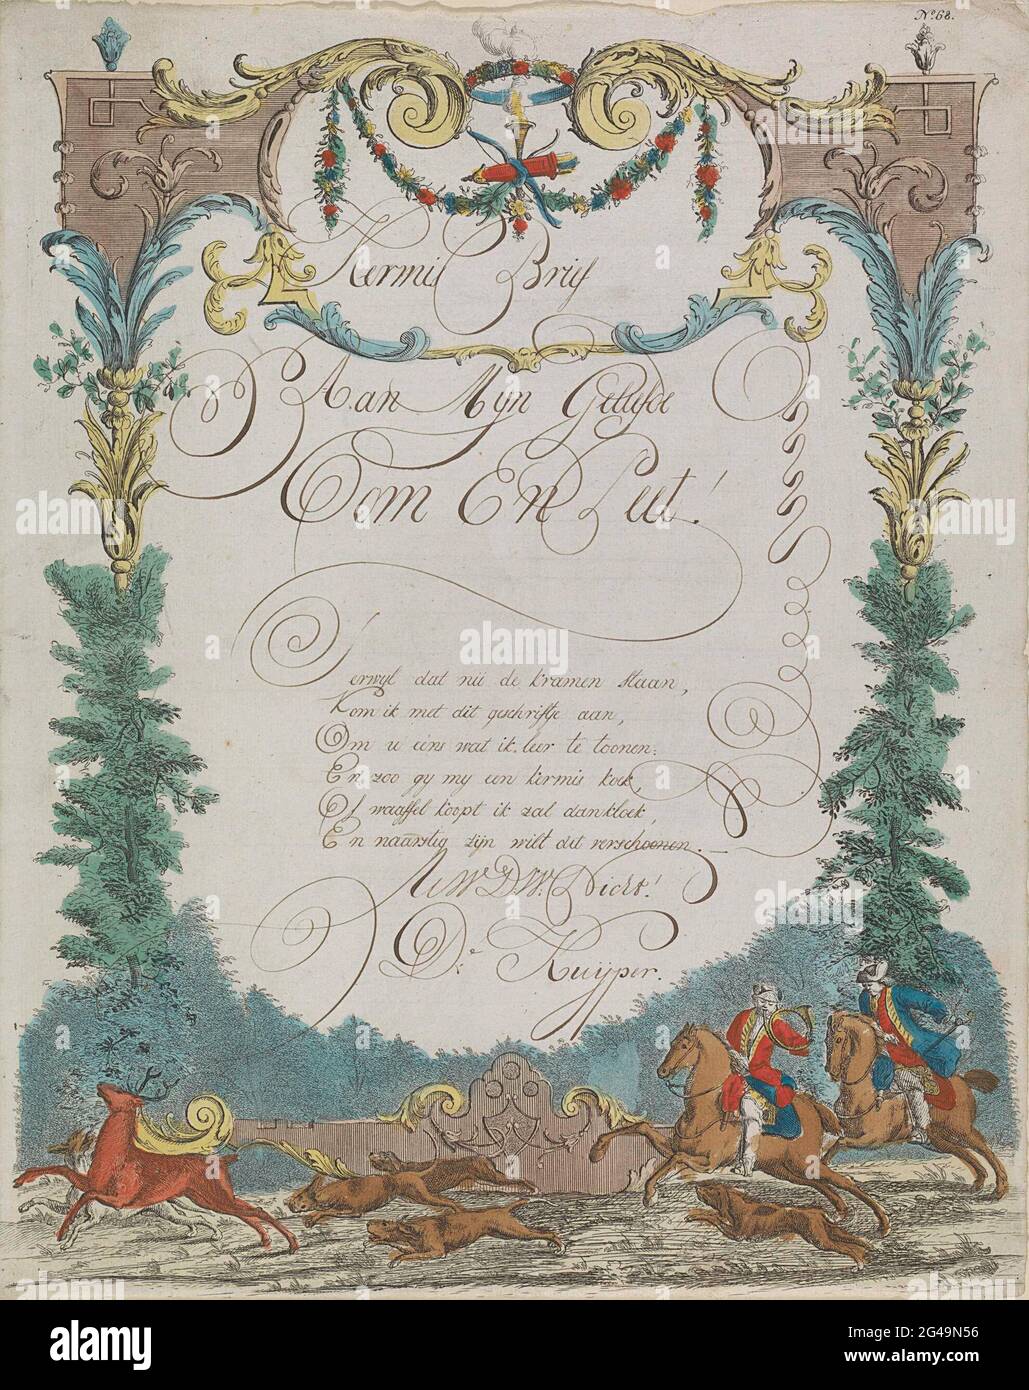 Nº 68.
Kermis Brief
Aan Myn Geliefde
Oom En Peet!
Terwyl dat nu de kramen staan,
Kom ik met dit geschriftje aan,
Om u eens wat ik leer te toonen:
En zoo gy my een kermis koek,
Of waaffel koopt ik zal dankloek,
En naarstig zijn wilt dit verschoonen.
UWDW. Nicht!
Dᵉ Kuÿper.
alamy
Image ID: 2G49N56
www.alamy.com